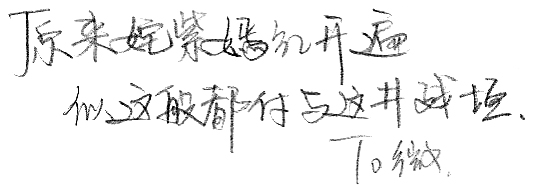 「原来姹紫嫣红开遍
似这般都付与这井残垣.
To 微.